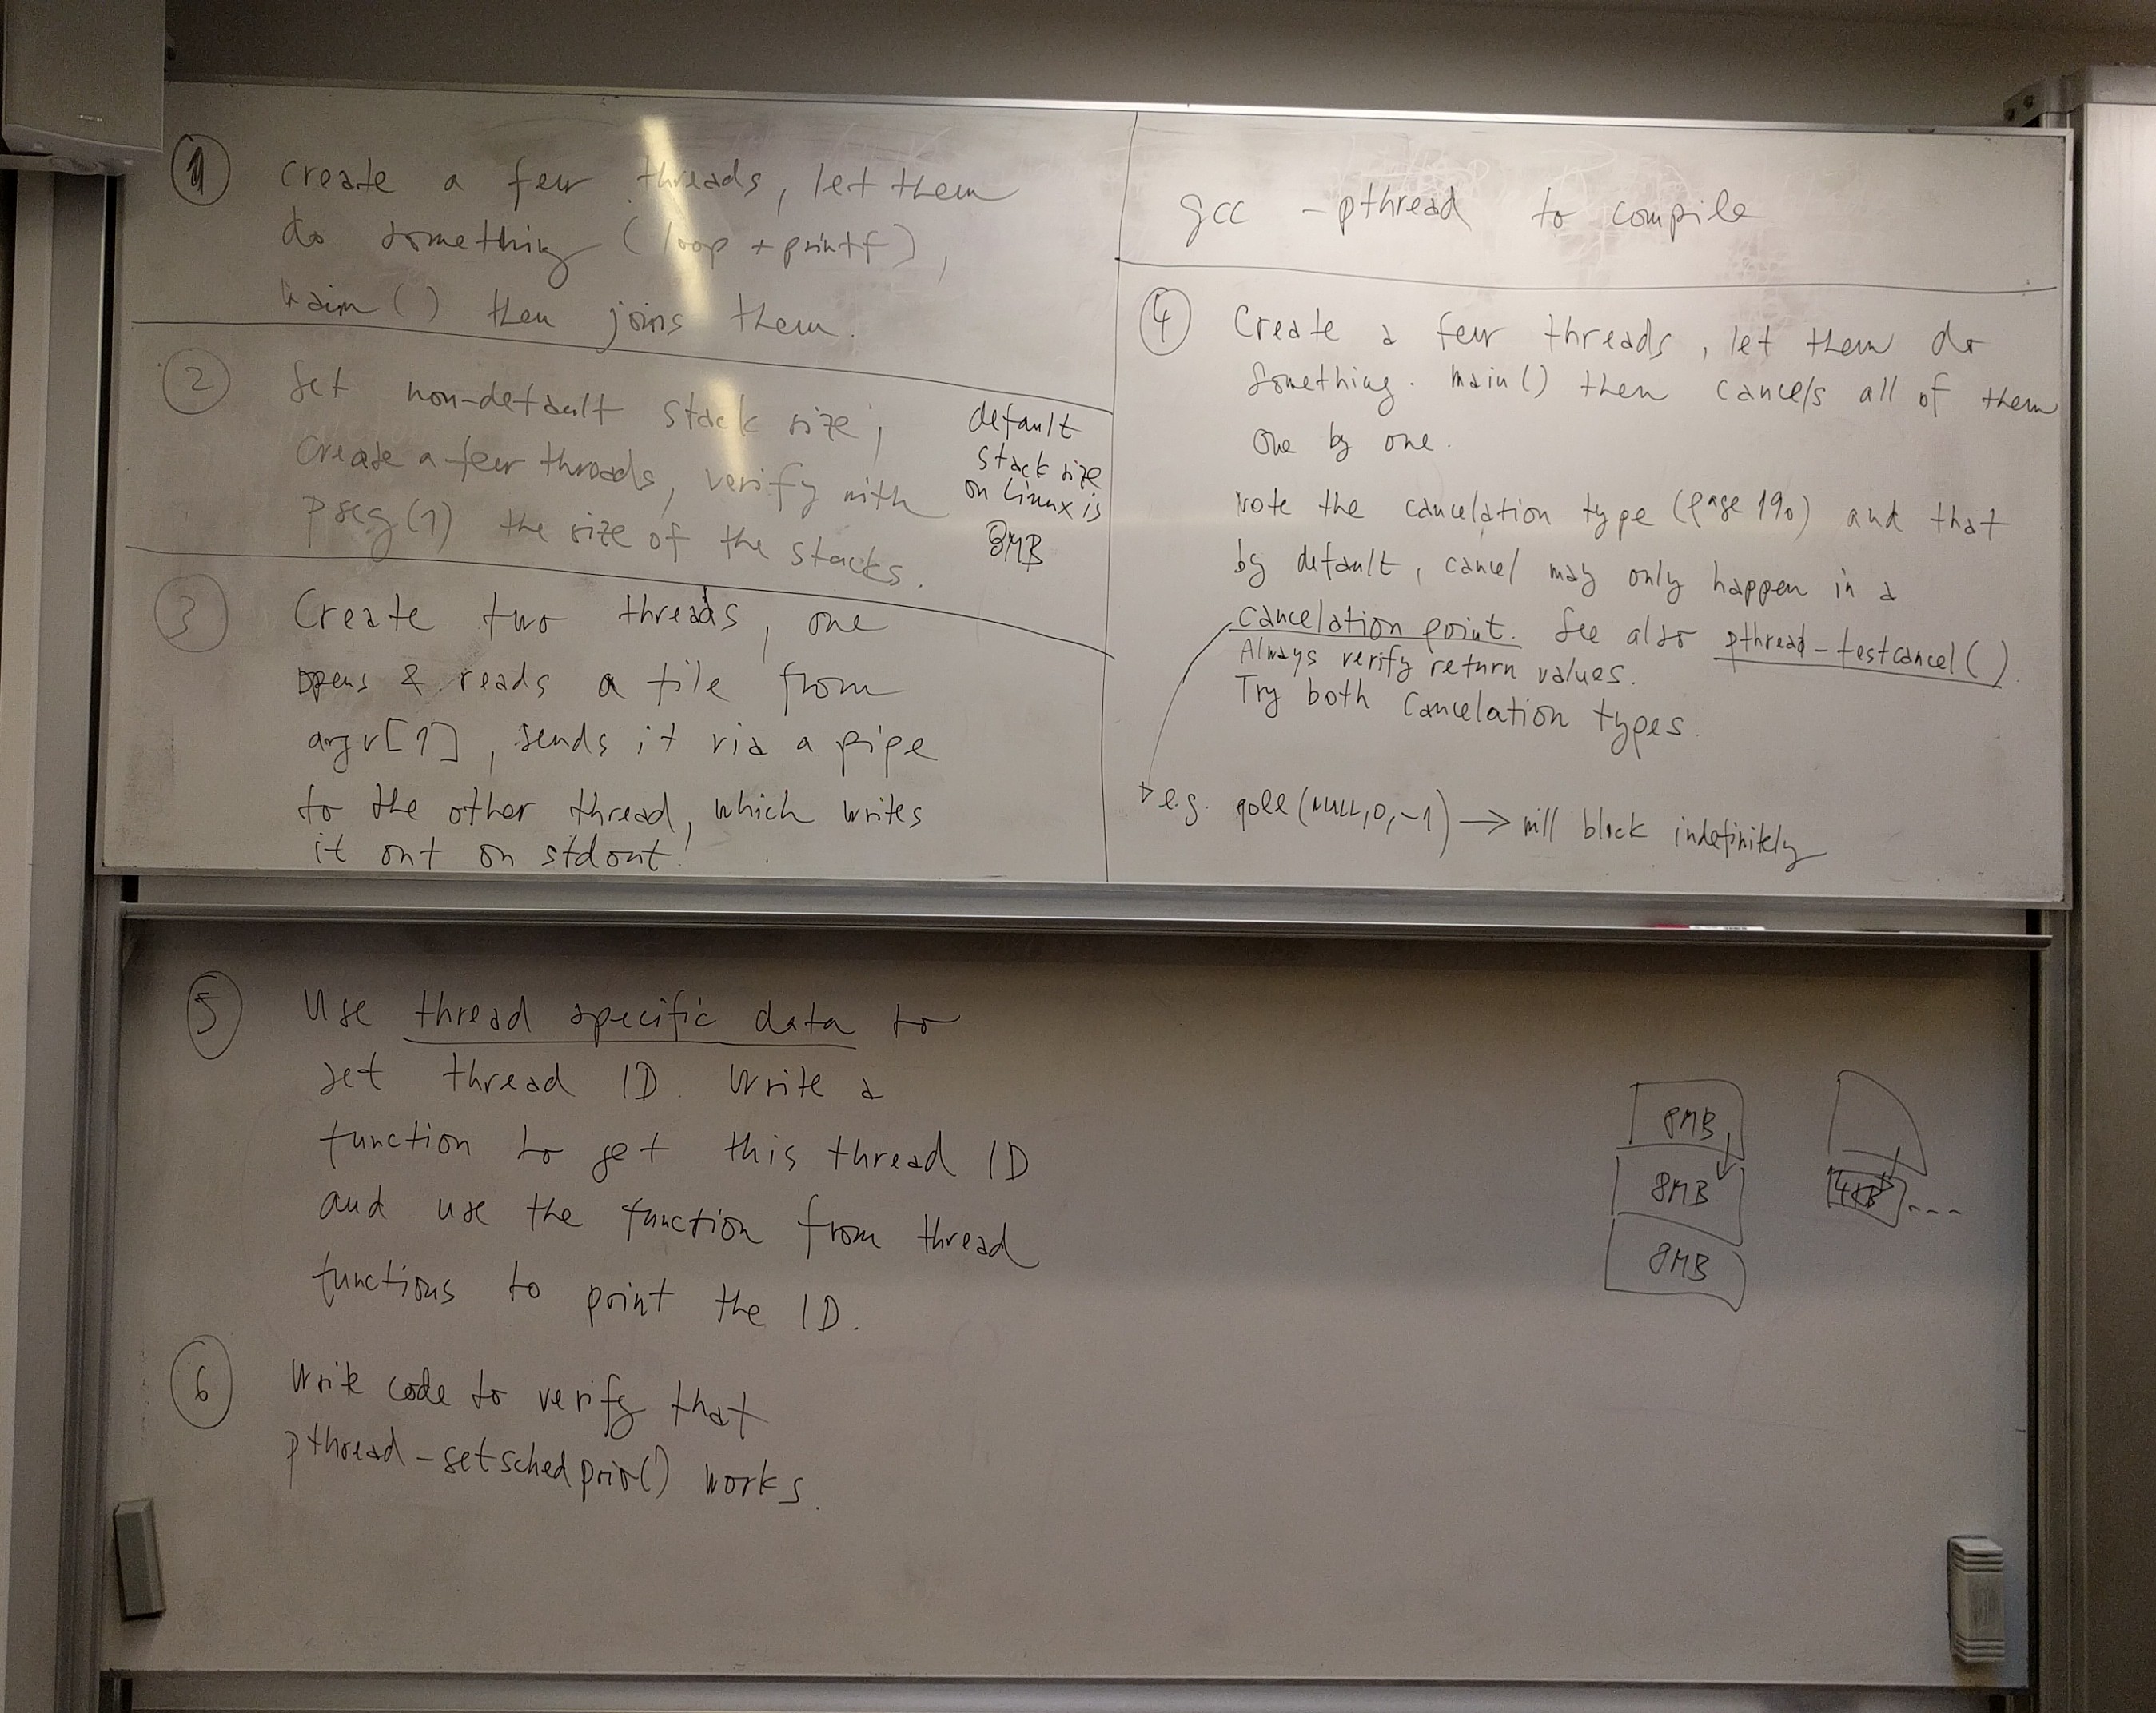 1
create a few threads, let them
do something (loop + printf),
main() then joins them.
2
Set non-default stack size;
Create a few threads, verify with
the size of the stacks.
default
stack size
on Linux is
8MB
3
Create two threads, one
opens & reads a file from
argv[1], sends it via a pipe
to the other thread, which writes
it out on stdout!
gcc -pthread to compile
4
Create a few threads, let them do
something. main() then cancels all of them
one by one.
Note the cancelation type (page 190) and that
by default, cancel may only happen in a
cancelation point. See also pthread-testcancel().
Always verify return values.
Try both Cancelation types.
e.g. poll(NULL,0,-1) → will block indefinitely
5
Use thread specific data to
set thread ID. Write a
function to get this thread ID
and use the function from thread
functions to print the ID.
6
Write code to verify that
pthread-setschedprio() works.
8MB
8MB
8MB
4KB